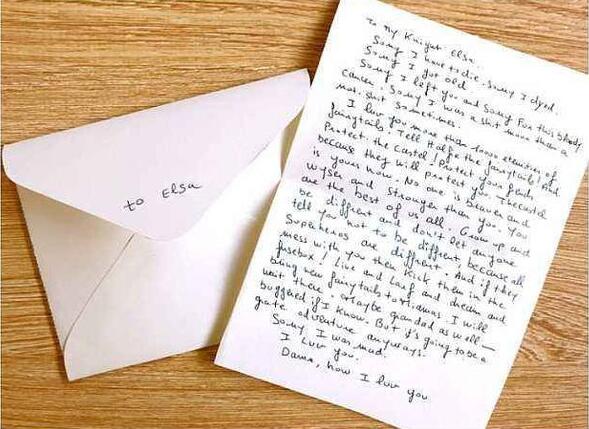 to Elsa
To My Knight Elsa.
Sorry I have to die. Sorry I dyed.
Sorry I got old.
Sorry I left you and Sorry For this blody
cancer. Sorry I was a shit more than a
not-shit sometimes.
I luv you more than eternities of
fairytails! Tell Halfe the fairytails! And
Protect the castel! Protect your fends
because they will protect you. The castel
is yours now. No one is braver and
wyser and stronger than you. You
are the best of us all. Grow up and
be diffrent and don't let anyone
tell you not to be diffrent, because all
Superheros are diffrent. And if they
mess with you then kick them in the
fusebox! Live and larf and dream and
bring new fairytails to Miamas. I will
weit there. Maybe grandad as well —
buggered if I know. But it's going to be a
grate adventure anyways.
Sorry I was mad.
I luv you.
Damn, how I luv you